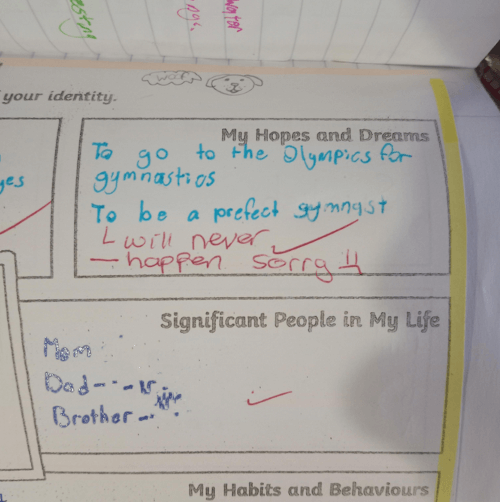 Water
woof
your identity.
yes
My Hopes and Dreams
To go to the Olympics for
gymnastics
To be a prefect gymnast
will never
happen sorry
Significant People in My Life
Mom
Dad
Brother
My Habits and Behaviours